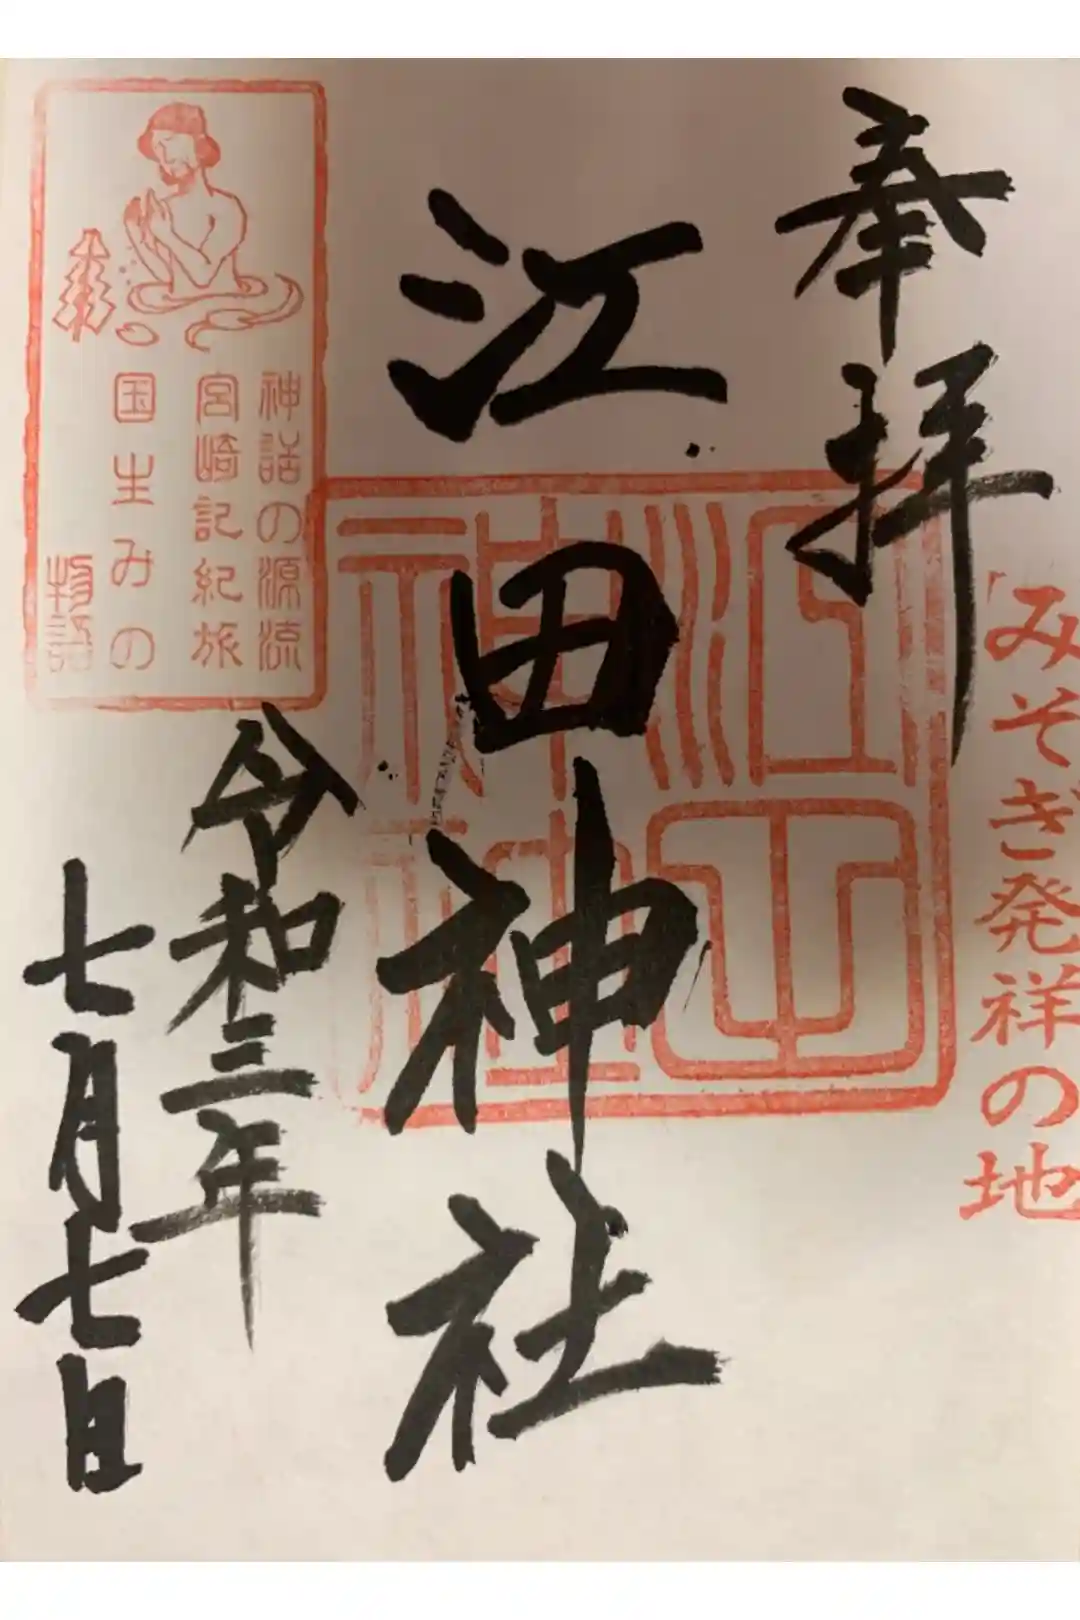 奉拝
「みそぎ発祥の地
江田神社
江田神社
神話の源流
宮崎記紀旅
国生みの
物語
令和三年
七月七日